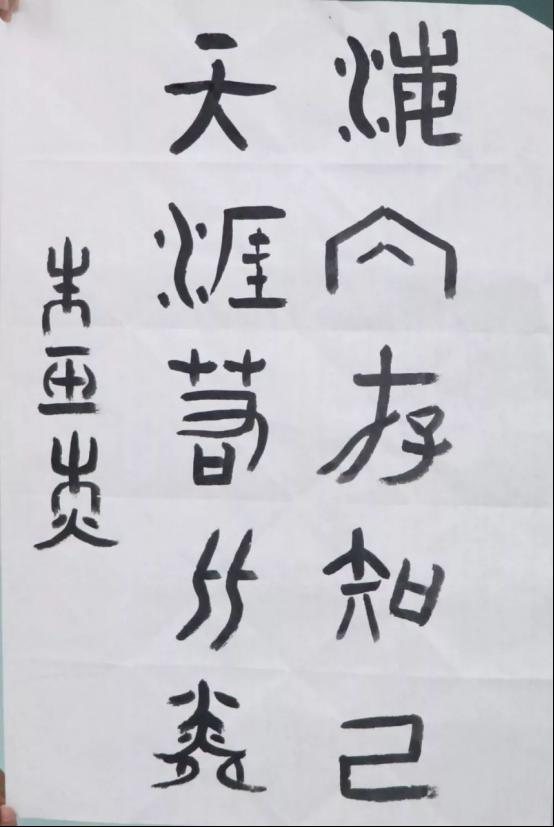 海内存知己
天涯若比邻
朱